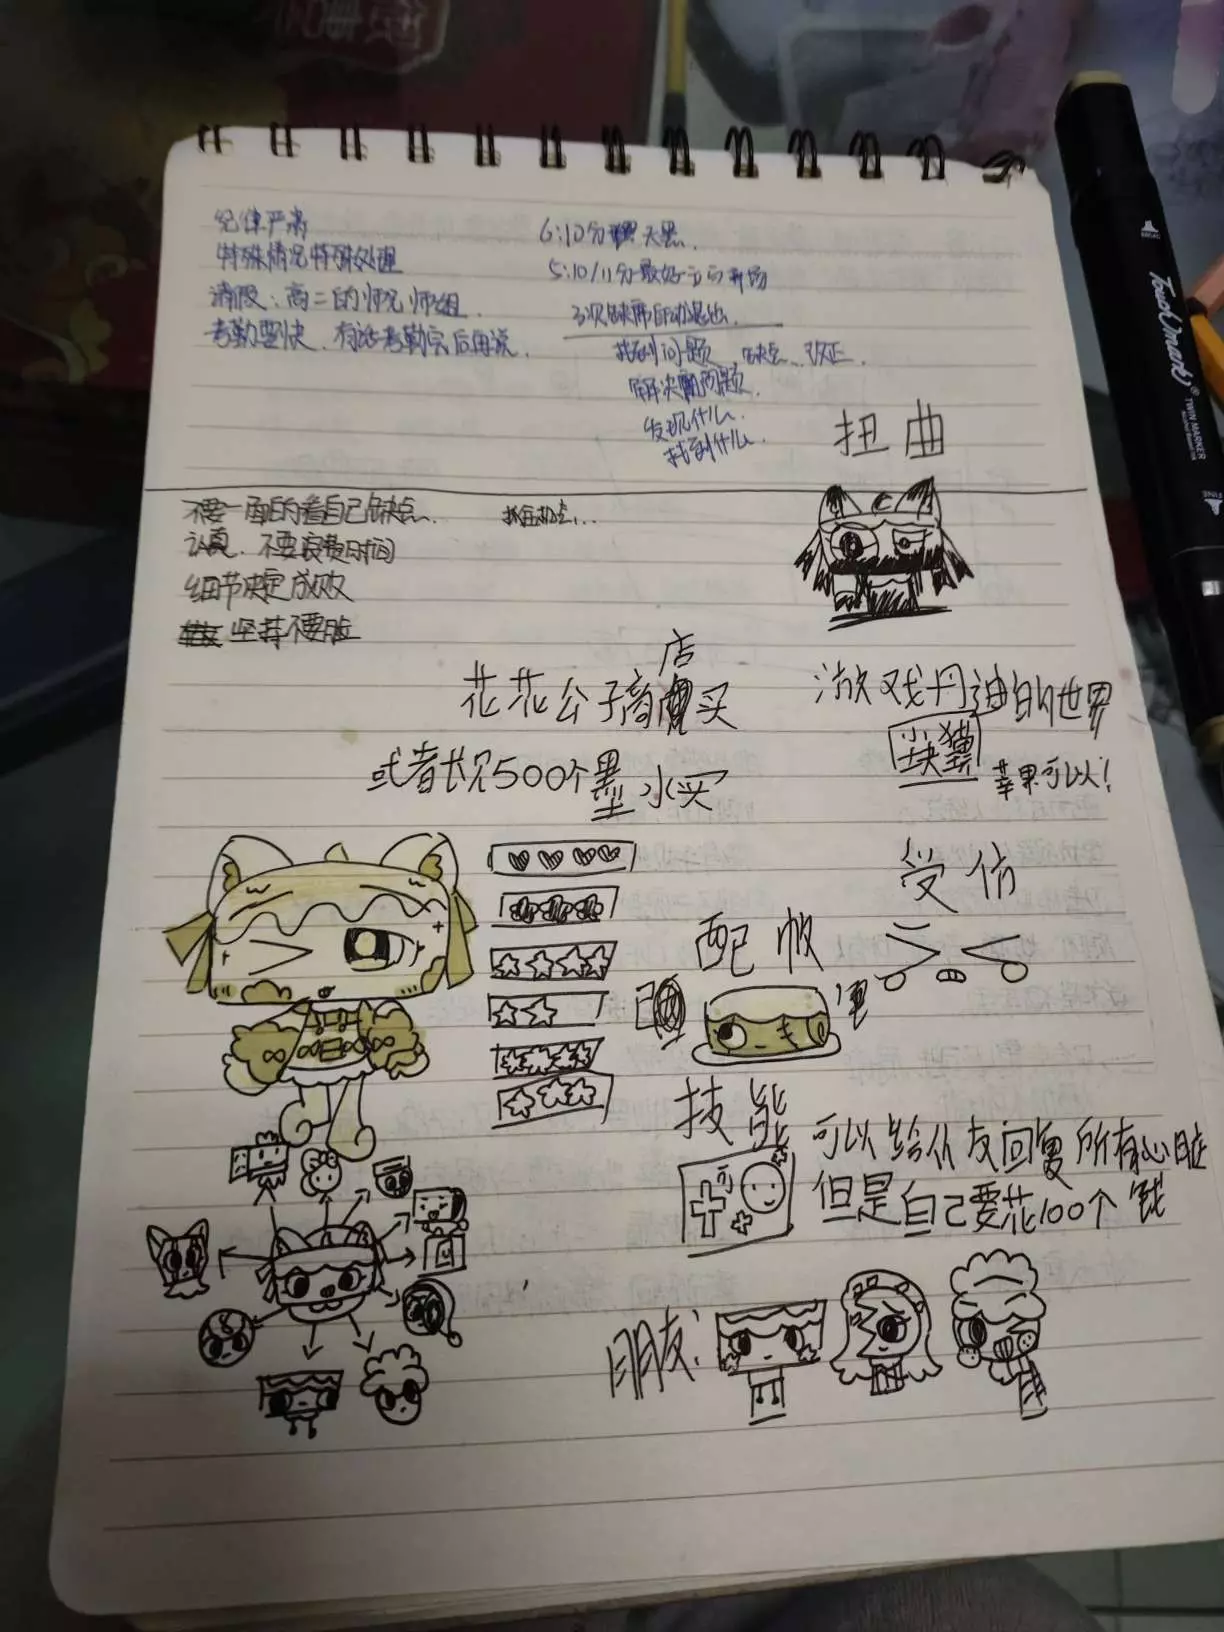 纪律严肃
特殊情况特殊处理
请假:高二的师兄师姐.
考勤要快、有话考勤完后再说.
6:10分 天黑.
5:10/11分最好立即开场
3次缺席自动退出.
找到问题、缺点...改正.
解决 问题.
发现什么.
找到什么.
扭曲
不要一面的看自己缺点.
认真、不要浪费时间
细节决定成败
坚持不要脸
花花公子商店买
或者长见500个墨水买
游戏丹迪的世界
苹果可以!
受伤
配饰
技能
可以给队友回复所有心脏
但是自己要花100个钱
朋友:
Touch mark
TWIN MARKER
BROAD
FINE